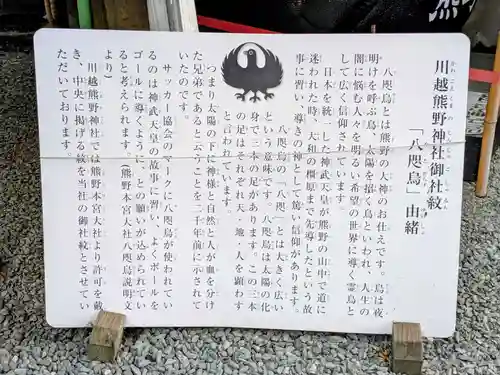 川越熊野神社御社紋
「八咫烏」由緒
八咫烏とは熊野の大神のお仕えです。烏は夜
明けを呼ぶ鳥、太陽を招く鳥といわれ、人生の
闇に悩む人々を明るい希望の世界に導く霊鳥と
して広く信仰されています。
日本を統一した神武天皇が熊野の山中で道に
迷われた時、大和の橿原まで先導したという故
事に習い、導きの神として篤い信仰があります。
八咫烏の「八咫」とは大きく広い
という意味です。八咫烏は太陽の化
身で三本の足があります。この三本
の足はそれぞれ天・地・人を顕わす
と言われています。
つまり太陽の下に神様と自然と人が血を分け
た兄弟であると云うことを二千年前に示されて
いたのです。
サッカー協会のマークに八咫烏が使われてい
るのは神武天皇の故事に習い、よくボールを
ゴールに導くように、との願いが込められてい
ると考えられます。（熊野本宮大社八咫烏説明文より）
川越熊野神社では熊野本宮大社より許可を戴
き、中央に掲げる紋を当社の御社紋とさせてい
ただいております。